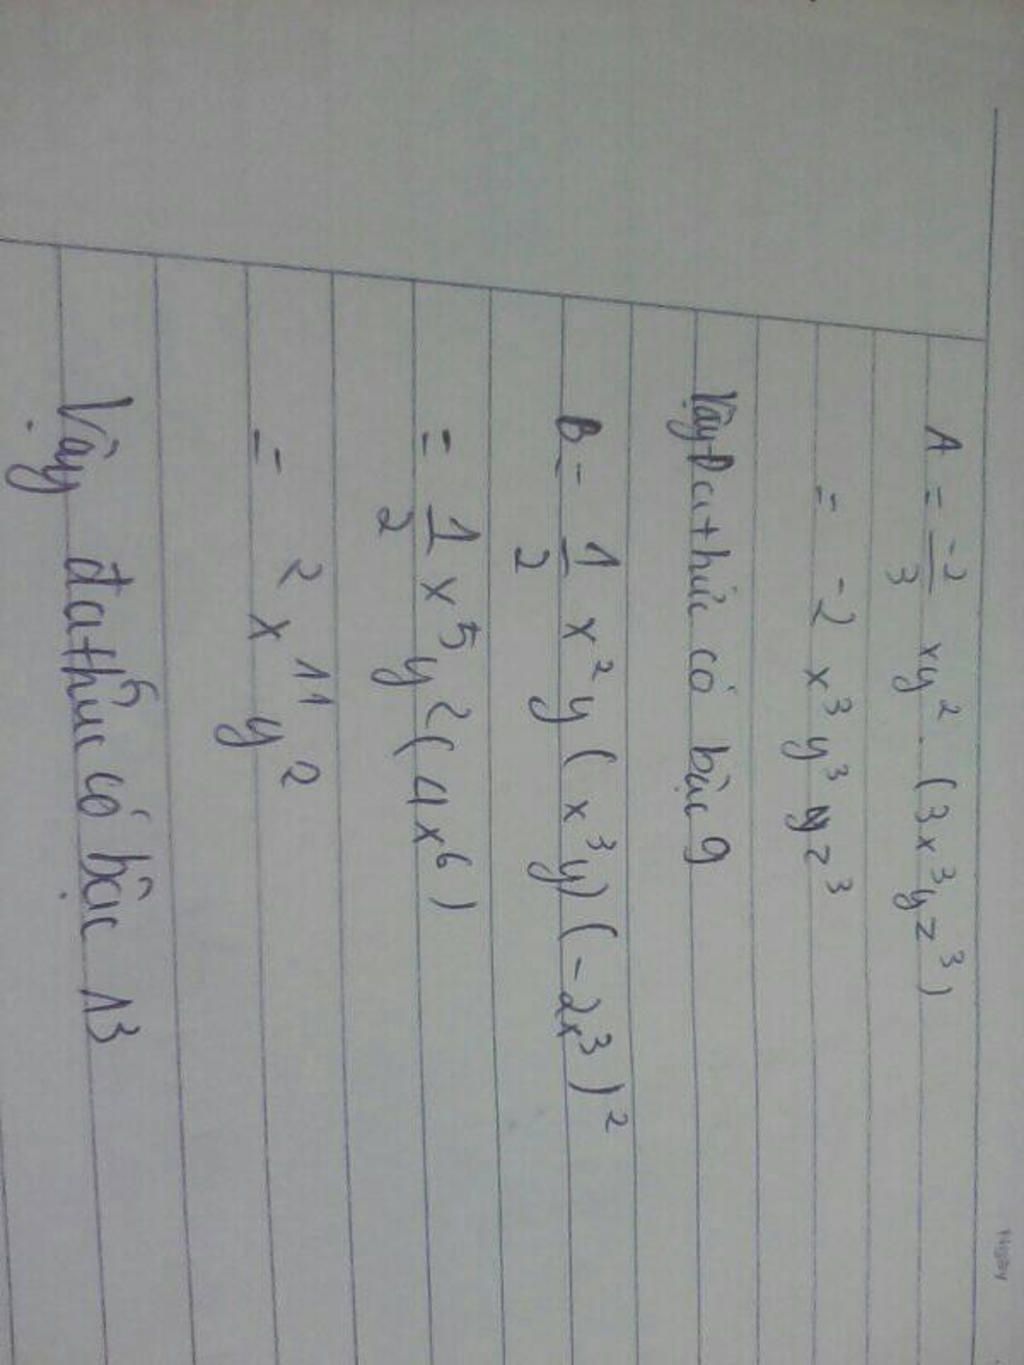 Ngày
A = -2/3 xy² . (3x³yz³)
= -2 x³y³ yz³
Vậy Đa thức có bậc 9
B = 1/2 x²y (x³y) (-2x³)²
= 1/2 x⁵y² (4x⁶)
= 2 x¹¹ y²
Vậy đa thức có bậc 13